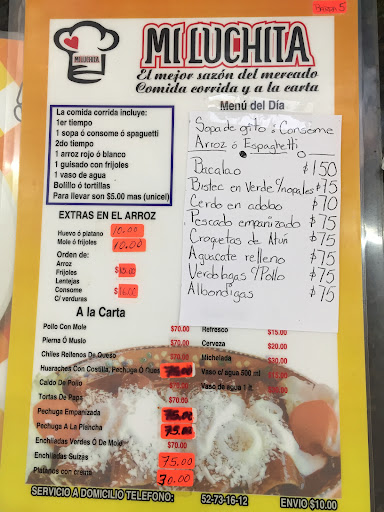 BARRA 5
MILUCHITA
MI LUCHITA
El mejor sazón del mercado
Comida corrida y a la carta
La comida corrida incluye:
1er tiempo
1 sopa ó consome ó spaguetti
2do tiempo
1 arroz rojo ó blanco
1 guisado con frijoles
1 vaso de agua
Bolillo ó tortillas
Para llevar son $5.00 mas (unicel)
EXTRAS EN EL ARROZ
Huevo ó platano 10.00
Mole ó frijoles 10.00
Orden de:
Arroz
Frijoles
Lentejas
Consome
C/ verduras
Menú del Día
Sopa de gito ó Consome
Arroz ó Espaghetti
Bacalao $150
Bistec en Verde c/nopales $75
Cerdo en adobo $70
Pescado empanizado $75
Croquetas de Atún $75
Aguacate relleno $75
Verdolagas c/Pollo $75
Albondigas $75
A la Carta
Pollo Con Mole $70.00
Pierna Ó Muslo $70.00
Chiles Rellenos De Queso $70.00
Huaraches Con Costilla, Pechuga Ó
Caldo De Pollo $70.00
Tortas De Papa $70.00
Pechuga Empanizada 75.00
Pechuga A La Plancha 75.00
Enchiladas Verdes Ó De Mole $70.00
Enchiladas Suizas 75.00
Platanos con crema 30.00
Refresco $15.00
Cerveza $20.00
Michelada $30.00
Vaso c/ agua 500 ml
Vaso de agua 1 lt.
SERVICIO A DOMICILIO TELEFONO: 52-73-16-12 ENVIO $10.00